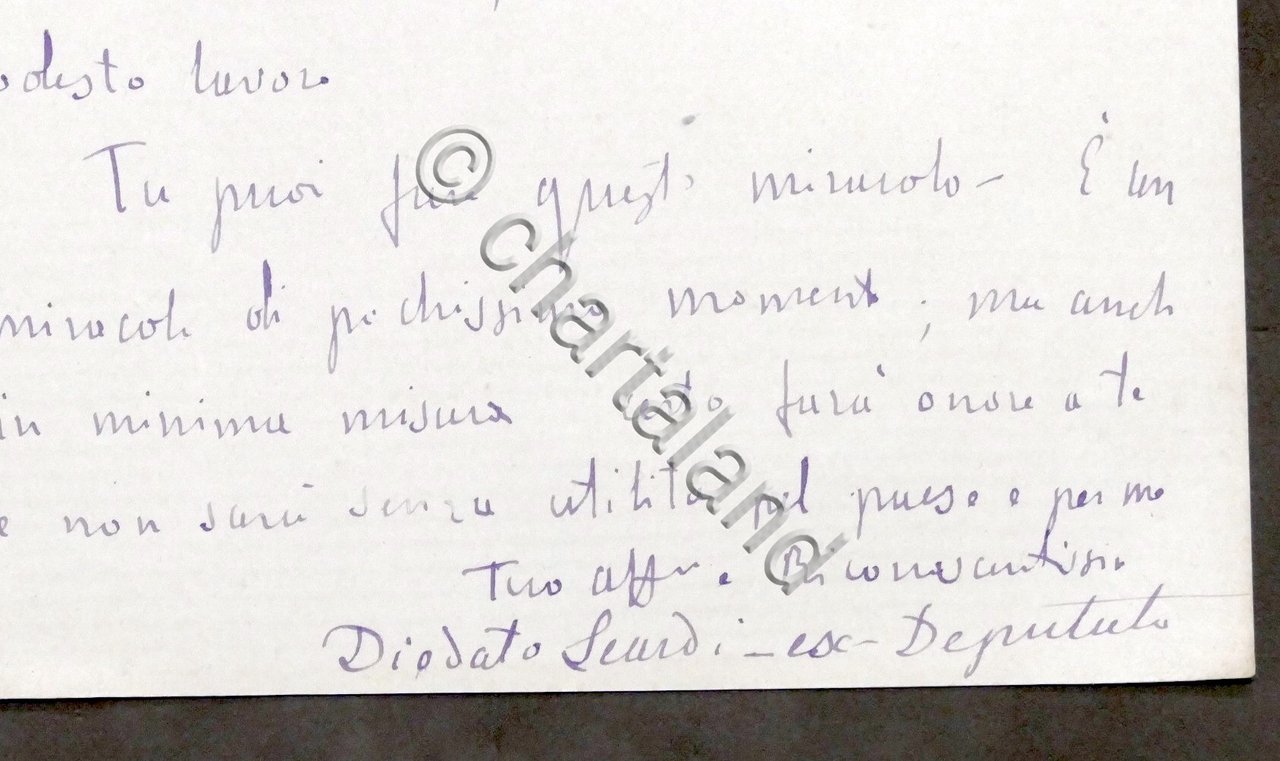 odesto lavoro
Tu puoi fare questo miracolo - È un
miracolo di pochissimo momento; ma anche
in minima misura farà onore a te
e non sarà senza utilità pel paese e per me
Tuo affmo e Riconoscentissimo
Diodato Leardi - ex - Deputato
© chartaland